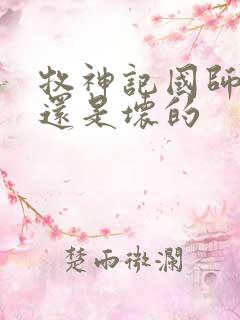 牧神記國師
還是壞的
楚雨微瀾